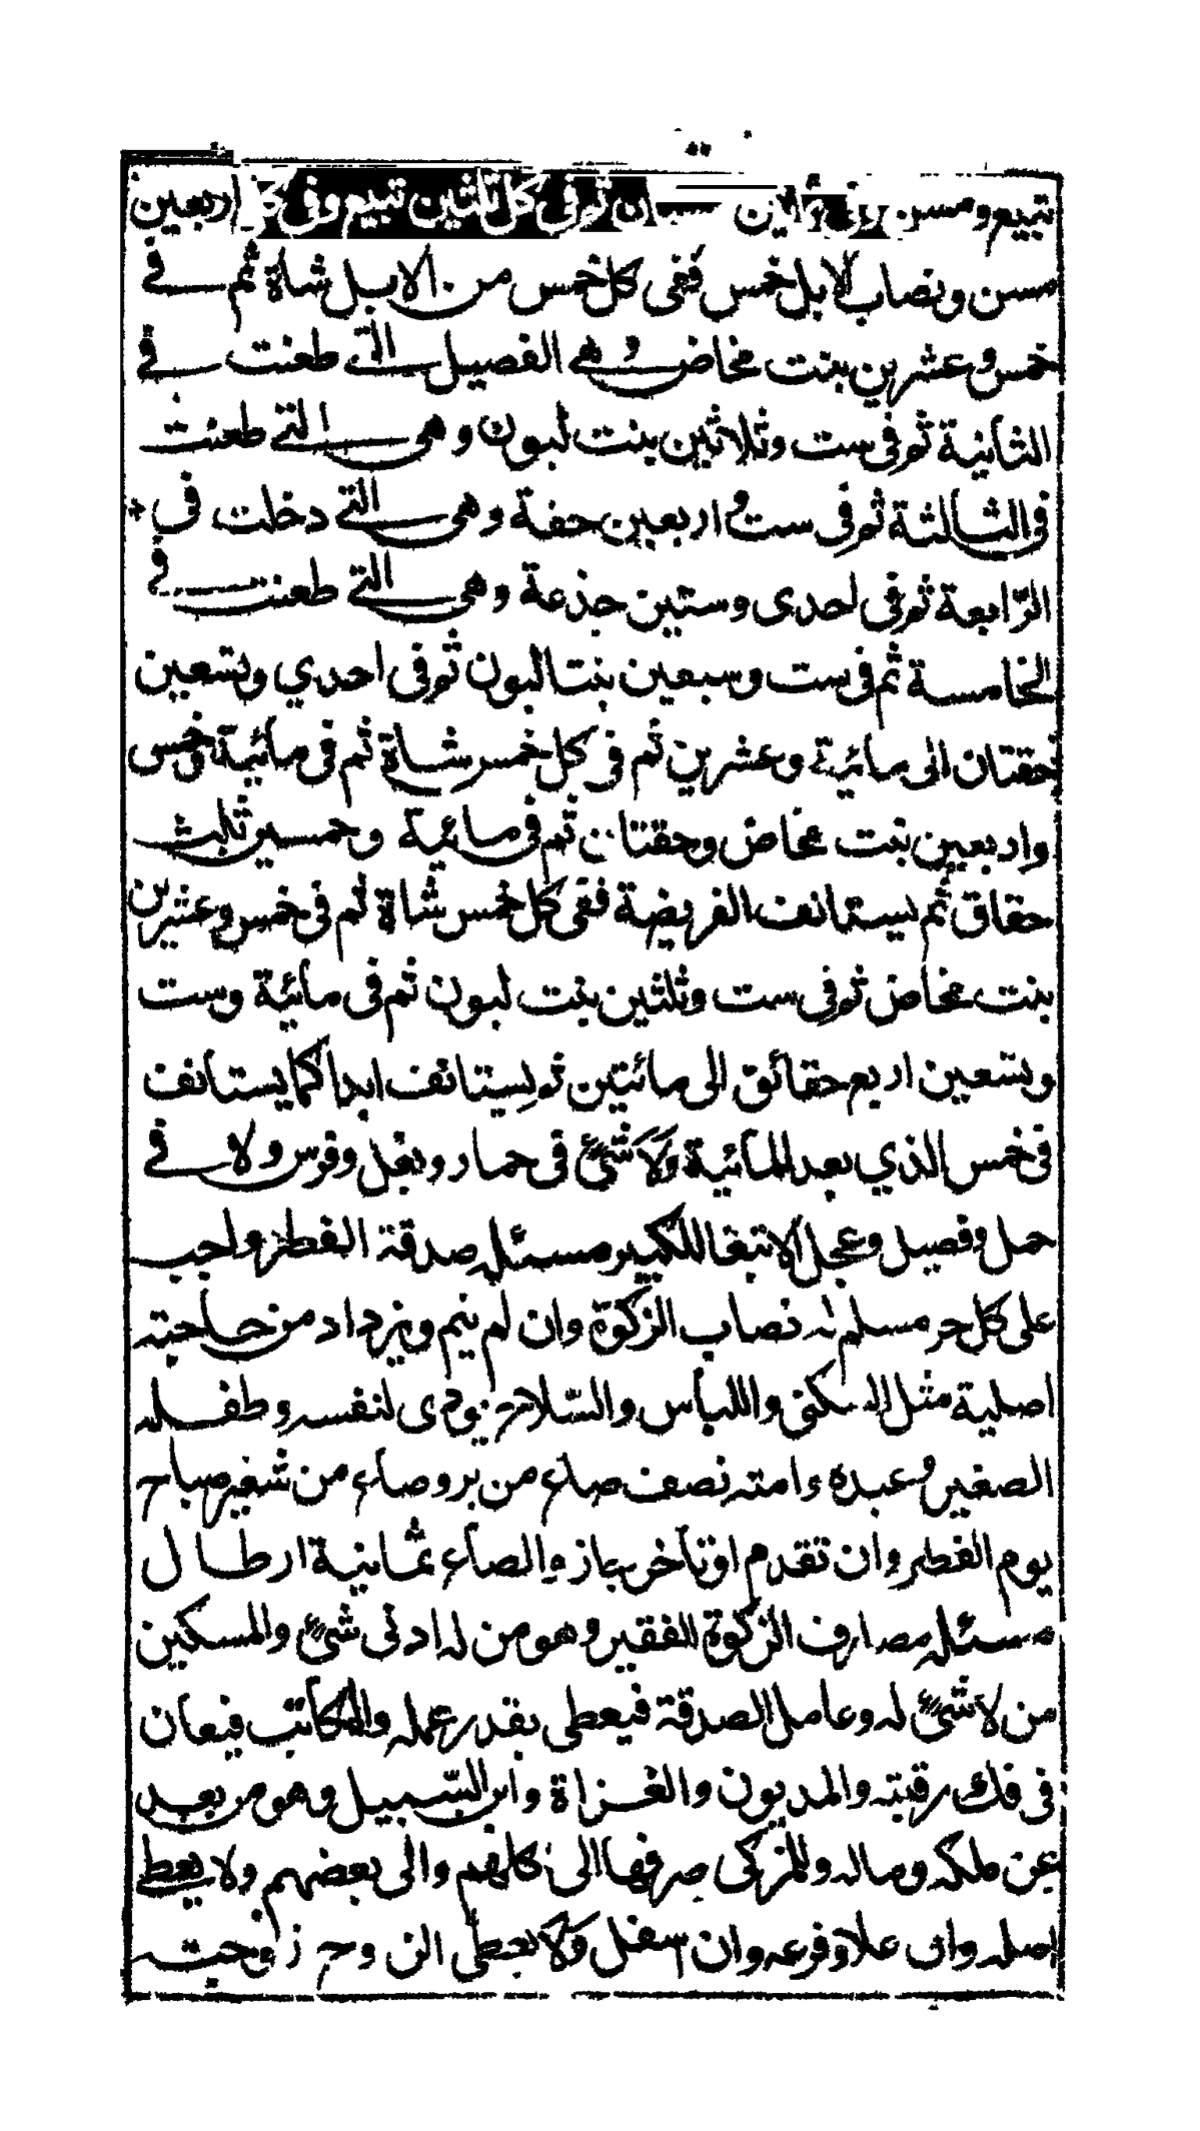 تبيع ومسن وفى ثم فى كل ثلثين تبيع وفى كل اربعين
مسن ونصاب الابل خمس ففى كل خمس من الابل شاة ثم فے
خمس وعشرين بنت مخاض وهے الفصيل التے طعنت فے
الثانية ثم فى ست وثلاثين بنت لبون وهى التے طعنت
فى الثالثة ثم فى ست واربعين حقة وهى التے دخلت فى
الرّابعة ثم فى احدى وستين جذعة وهى التے طعنت فے
الخامسة ثم فى ست وسبعين بنتا لبون ثم فى احدي وتسعين
حقتان الى مائية وعشرين ثم فى كل خمس شاة ثم فى مائية وخمس
واربعين بنت مخاض وحقتان ثم فى مائية وخمسين ثلث
حقاق ثم يستانف الفريضة ففى كل خمس شاة ثم فى خمس وعشرين
بنت مخاض ثم فى ست وثلثين بنت لبون ثم فى مائية وست
وتسعين اربع حقائق الى مائتين ثم يستانف ابدا كما يستانف
فى خمس الذي بعد المائية ولا شئ فى حمار وبغل وفرس ولا فے
حمل وفصيل وعجل الا تبعا للكبير مسئله صدقة الفطر واجب
على كل حر مسلم له نصاب الزكوة وان لم ينم ويزداد من حاجته
اصلية مثل السكنى واللباس والسّلاح يودى لنفسه وطفله
الصغير وعبده وامته نصف صاع من بر وصاع من شعير صباح
يوم الفطر وان تقدم او تاخر جاز والصاع ثمانية ارطال
مسئله مصارف الزكوة الفقير وهو من له ادنى شئ والمسكين
من لا شئ له وعامل الصدقة فيعطى بقدر عمله والمكاتب فيعان
فى فك رقبته والمديون والغزاة وابن السّبيل وهو من بعد
عن ملكه وماله وللمزكى صرفها الى كلهم والى بعضهم ولا يعطے
اصله وان علا وفرعه وان سفل ولا يعطى الزوج زوجته